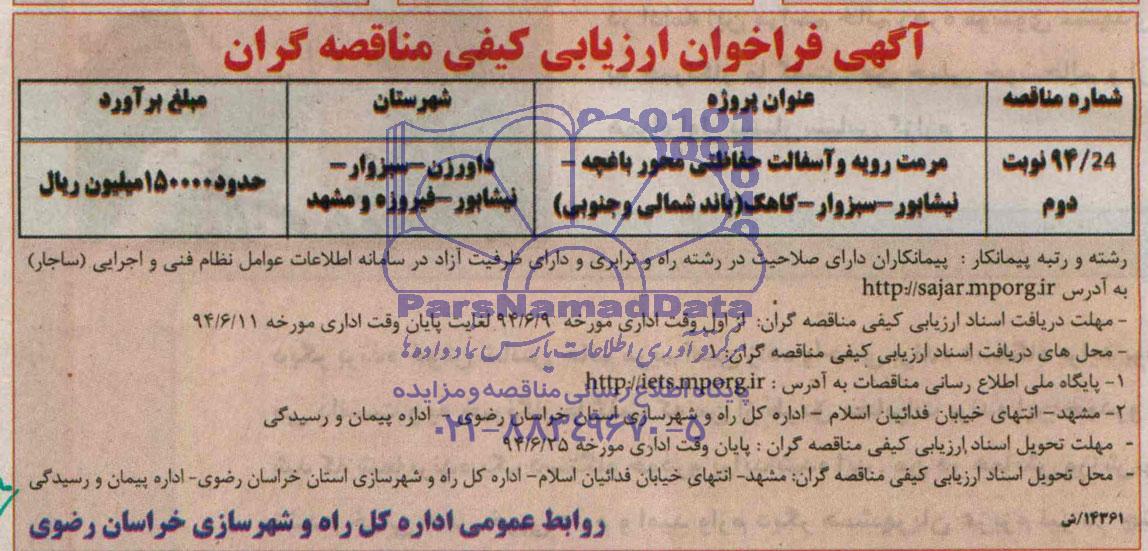 آگهی فراخوان ارزیابی کیفی مناقصه گران
شماره مناقصه عنوان پروژه شهرستان مبلغ برآورد
۹۴/24 نوبت دوم
مرمت رویه وآسفالت حفاظتی محور باغچه -
نیشابور-سبزوار-کاهک(باند شمالی وجنوبی)
داورزن-سبزوار-
نیشابور-فیروزه و مشهد
حدود۱۵۰۰۰۰میلیون ریال
رشته و رتبه پیمانکار : پیمانکاران دارای صلاحیت در رشته راه و ترابری و دارای ظرفیت آزاد در سامانه اطلاعات عوامل نظام فنی و اجرایی (ساجار)
به آدرس http://sajar.mporg.ir
- مهلت دریافت اسناد ارزیابی کیفی مناقصه گران: از اول وقت اداری مورخه ۹۴/۶/۹ لغایت پایان وقت اداری مورخه ۹۴/۶/۱۱
- محل های دریافت اسناد ارزیابی کیفی مناقصه گران:
۱- پایگاه ملی اطلاع رسانی مناقصات به آدرس : http://iets.mporg.ir
۲- مشهد- انتهای خیابان فدائیان اسلام - اداره کل راه و شهرسازی استان خراسان رضوی - اداره پیمان و رسیدگی
- مهلت تحویل اسناد ارزیابی کیفی مناقصه گران : پایان وقت اداری مورخه ۹۴/۶/۲۵
- محل تحویل اسناد ارزیابی کیفی مناقصه گران: مشهد- انتهای خیابان فدائیان اسلام- اداره کل راه و شهرسازی استان خراسان رضوی- اداره پیمان و رسیدگی
۱۴۳۶۱/ش
روابط عمومی اداره کل راه و شهرسازی خراسان رضوی
ParsNamadData
مرکز فرآوری اطلاعات پارس نماد داده ها
پایگاه اطلاع رسانی مناقصه و مزایده
۰۲۱-۸۸۳۴۹۶۷۰-۵